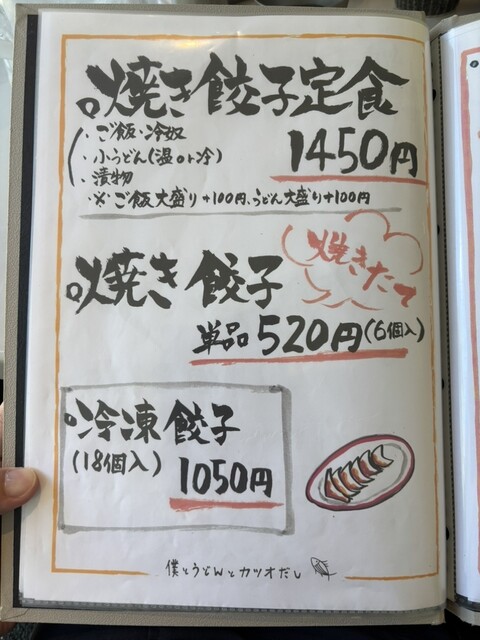 焼き餃子定食
・ご飯・冷奴
・小うどん(温or冷)
・漬物
・※ご飯大盛り+100円、うどん大盛り+100円
1450円
焼き餃子
焼きたて
単品520円(6個入)
冷凍餃子
(18個入)
1050円
僕とうどんとカツオだし